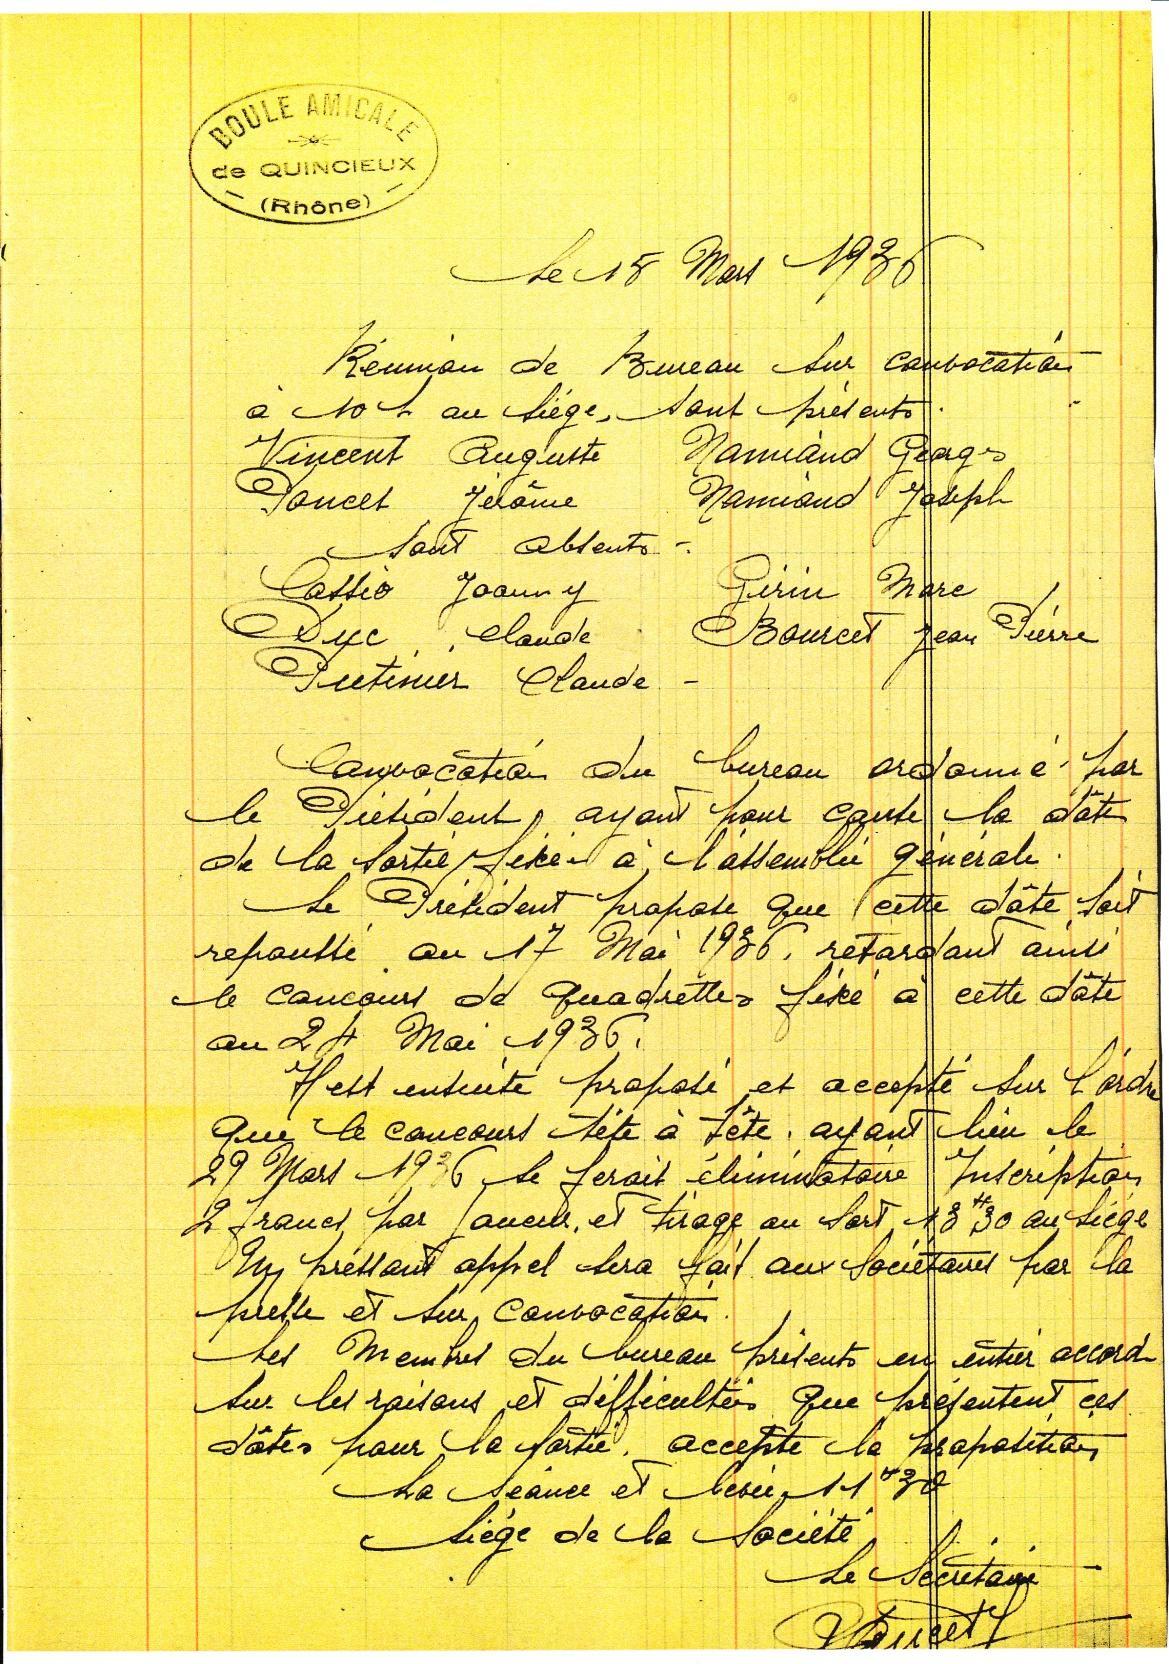 BOULE AMICALE
de QUINCIEUX
(Rhône)
Le 15 Mars 1936
Réunion de Bureau sur convocation
à 10 h au Siége, sont présents.
Vincent Auguste Namiand Georges
Poncet Jérôme Namiand Joseph
Sont absents -
Cassio Joanny Girin Marc
Duc Claude Bourcet Jean Pierre
Putinier Claude -
Convocation du bureau ordonné par
le Président, ayant pour cause la dâte
de la Sortie, fixée à l'assemblée générale.
Le Président propose que cette dâte soit
repoussé au 17 Mai 1936. retardant ainsi
le concours de Quadrettes fixé à cette dâte
au 24 Mai 1936.
Il est ensuite proposé et accepté sur l'ordre
que le concours tête à tête. ayant lieu le
29 Mars 1936 se ferait éliminatoire Inscription
2 francs par Joueur, et tirage au Sort 13H30 au Siége
Un pressant appel sera fait aux Sociétaires par la
presse et sur convocation.
Les Membres du bureau présents en entier accord
sur les raisons et difficultés que présentent ces
dâtes pour la sortie. accepte la proposition
La Séance et levée 11H30
Siége de la Société
Le Secrétaire
Poncet J